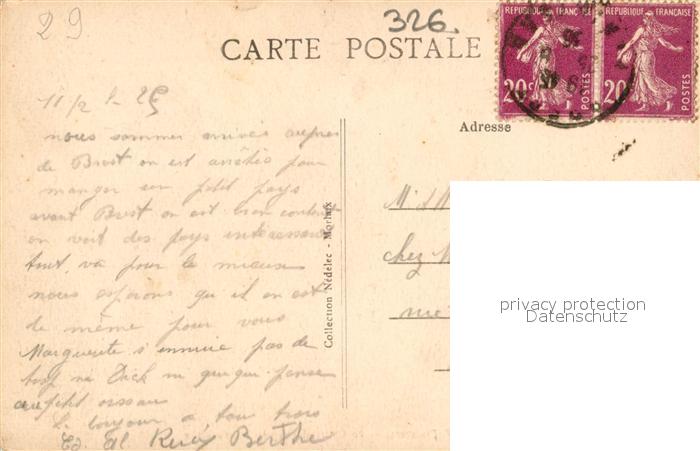 29
326.
CARTE POSTALE
RÉPUBLIQUE FRANÇAISE
20c
POSTES
RÉPUBLIQUE FRANÇAISE
20c
POSTES
Adresse
nous sommes arrivés auprès
de Brest on est arrêtés pour
manger un petit pays
avant Brest on est bien content
on voit des pays intéressant
tout va pour le mieux
nous espérons qu il en est
de même pour vous
Marguerite s ennuie pas de
trop ni Dick ni pense
au petit oiseau
Le bonjour a tous trois
Berthe
Collection Nédelec - Morlaix
M. et M
chez M
rue
privacy protection
Datenschutz